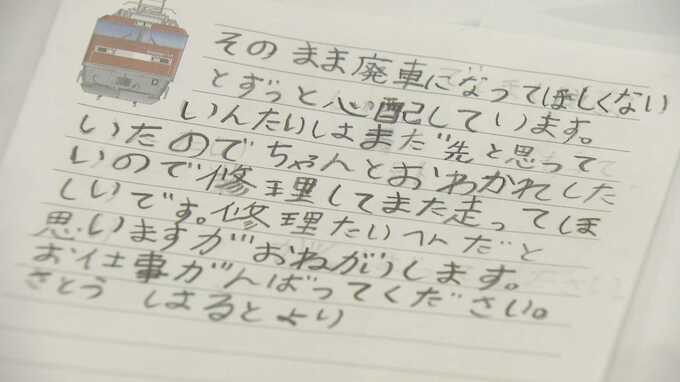 そのまま廃車になってほしくない
とずっと心配しています。
いんたいはまだ先と思って
いたのでちゃんとおわかれした
いので修理してまた走ってほ
しいです。修理たいへんだと
思いますがおねがいします。
お仕事がんばってください。
さとう はるとより